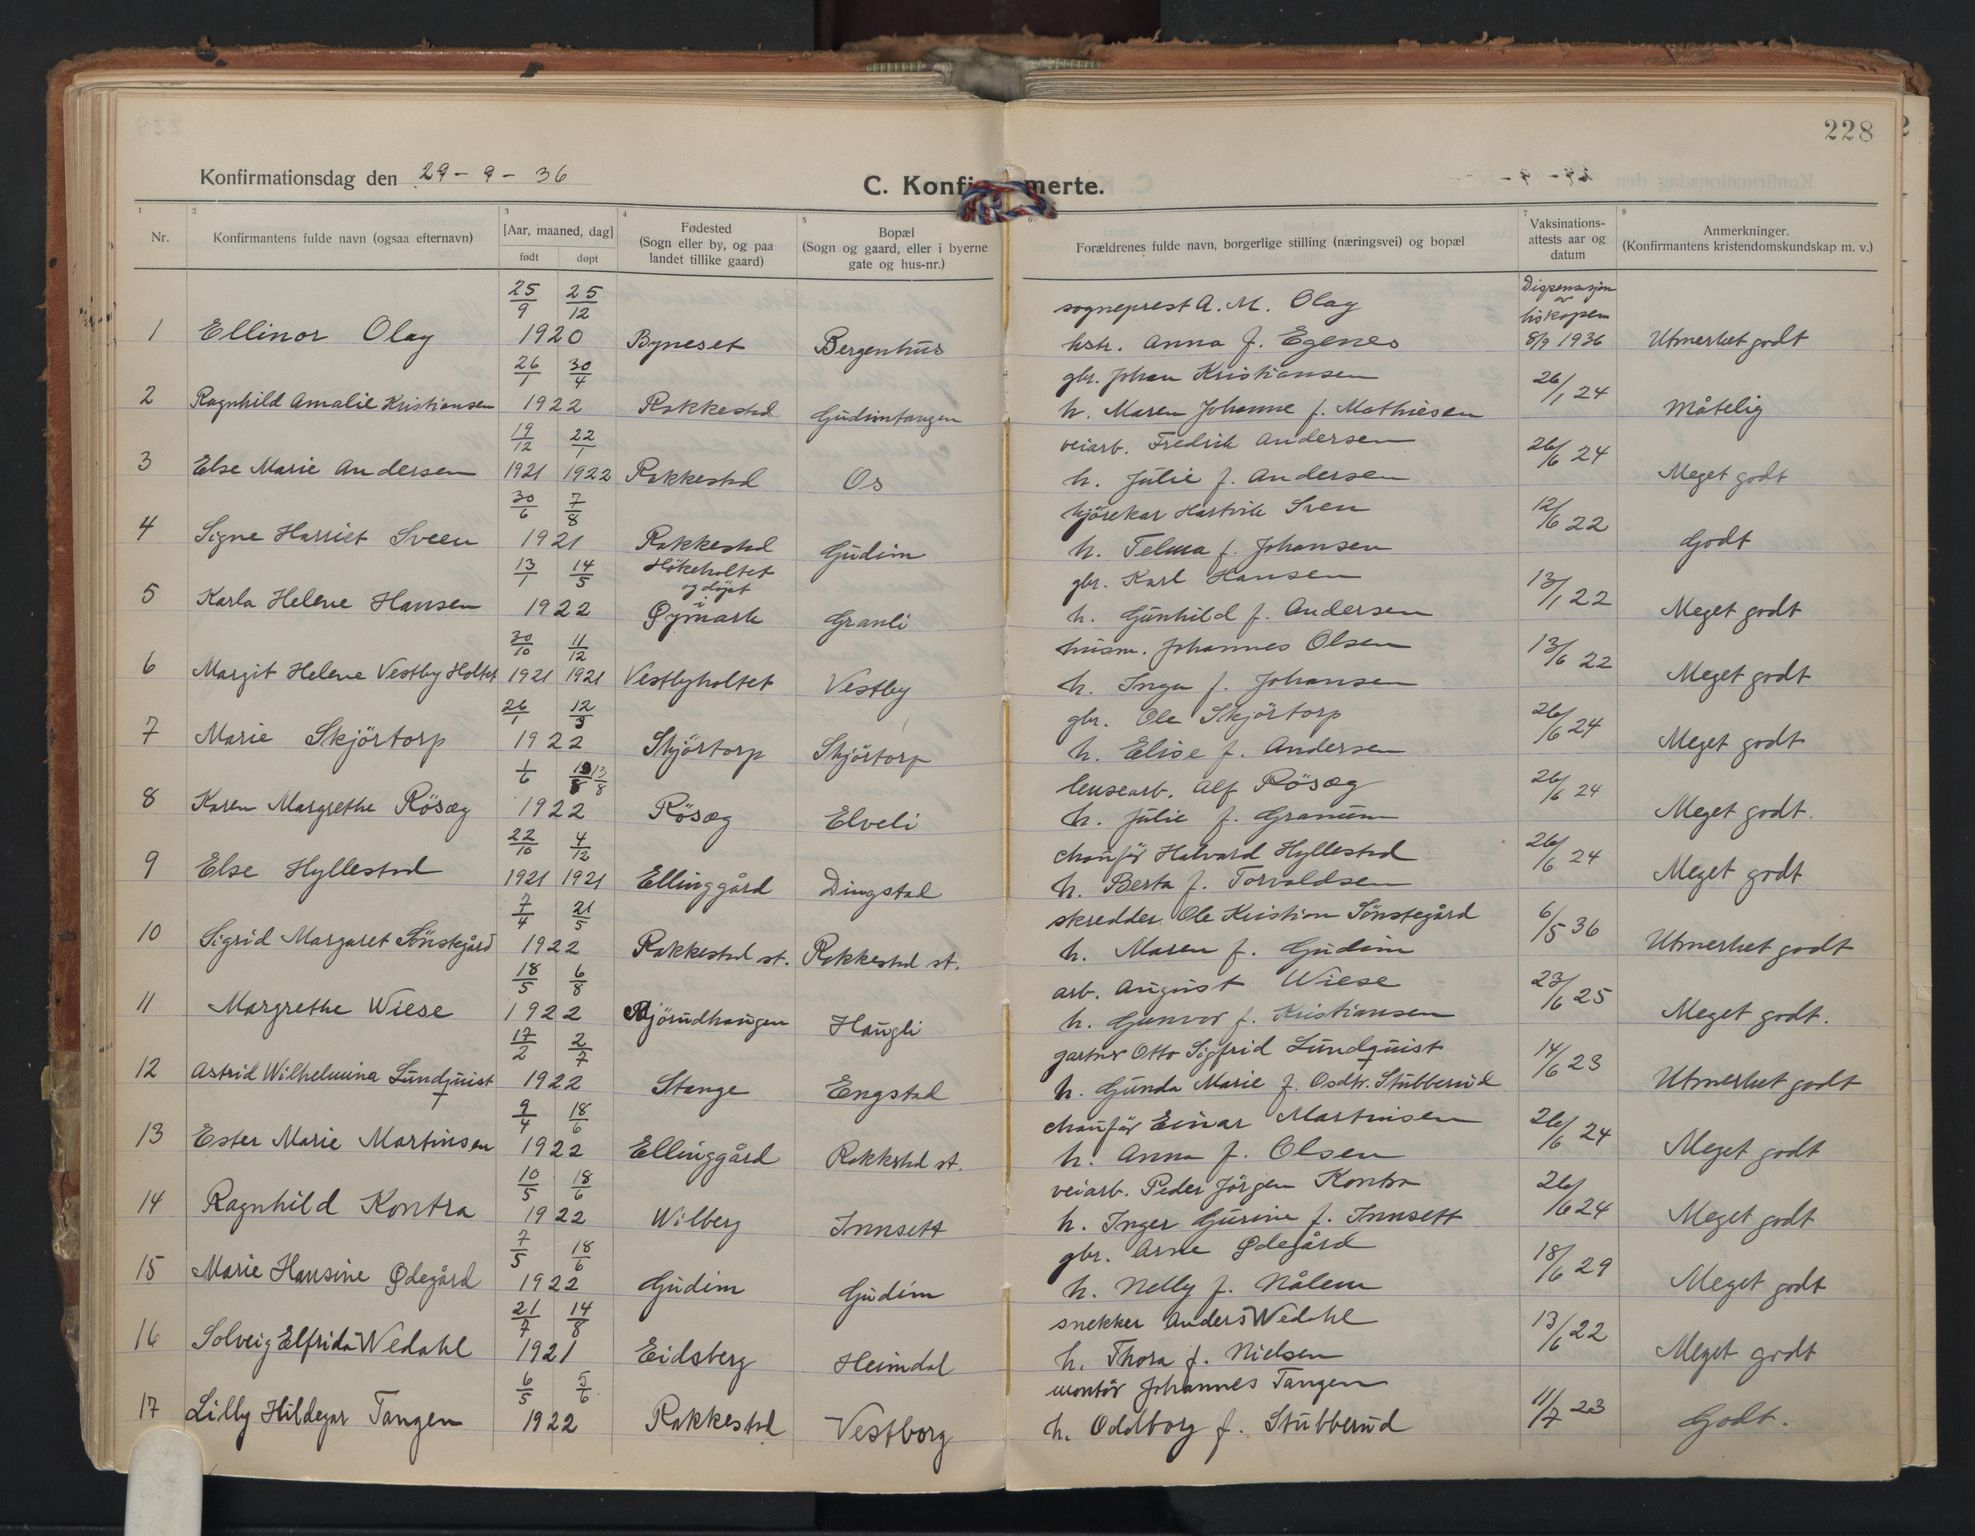 228
Konfirmationsdag den 29 - 9 - 36
C. Konfi merte.
1 2 3 4 5 6 7 8
Nr. Konfirmantens fulde navn (ogsaa efternavn) [Aar, maaned, dag] født døpt Fødested (Sogn eller by, og paa landet tillike gaard) Bopæl (Sogn og gaard, eller i byerne gate og hus-nr.) Forældrenes fulde navn, borgerlige stilling (næringsvei) og bopæl Vaksinations-attests aar og datum Anmerkninger. (Konfirmantens kristendomskundskap m. v.)
25/9 25/12 sogneprest A. M. Olay Dispensasjon av biskopen
1 Ellinor Olay 1920 Byneset Bergenhus hstr. Anna f. Egenes 8/9 1936 Utmerket godt
26/1 30/4 gbr. Johan Kristiansen
2 Ragnhild Amalie Kristiansen 1922 Rakkestad Gudimtangen h. Maren Johanne f. Mathiesen 26/1 24 Måtelig
19/12 22/1 veiarb. Fredrik Andersen
3 Else Marie Andersen 1921 1922 Rakkestad Os h. Julie f. Andersen 26/6 24 Meget godt
30/6 7/8 kjörekar Hartvik Sven
4 Signe Harriet Sveen 1921 Rakkestad Gudim h. Telma f. Johansen 12/6 22 Godt
13/1 14/5 Hökeholtet og döpt i gbr. Karl Hansen
5 Karla Helene Hansen 1922 Øymark Granli h. Gunhild f. Andersen 13/1 22 Meget godt
30/10 11/12 husm. Johannes Olsen
6 Margit Helene Vestby Holtet 1921 1921 Vestbyholtet Vestby h. Inga f. Johansen 13/6 22 Meget godt
26/1 12/3 gbr. Ole Skjörtorp
7 Marie Skjörtorp 1922 Skjörtorp Skjörtorp h. Elise f. Andersen 26/6 24 Meget godt
1/6 13/8 lensearb. Alf Rösæg
8 Karen Margrethe Rösæg 1922 Rösæg Elveli h. Julie f. Granum 26/6 24 Meget godt.
22/10 4/12 chauför Halvard Hyllestad
9 Else Hyllestad 1921 1921 Ellinggård Dingstad h. Berta f. Torvaldsen 26/6 24 Meget godt
7/4 21/5 skredder Ole Kristian Sönstegård
10 Sigrid Margaret Sönstegård 1922 Rakkestad st. Rakkestad st. h. Maren f. Gudim 6/5 36 Utmerket godt
18/5 6/8 arb. August Wiese
11 Margrethe Wiese 1922 Björudhaugen Haugli h. Gunvor f. Kristiansen 23/6 25 Meget godt.
17/2 2/7 gartner Otto Sigfrid Lundquist
12 Astrid Wilhelmina Lundquist 1922 Stange Engstad h. Gunda Marie f. Osdtr. Stubberud 14/6 23 Utmerket godt
9/4 18/6 chauför Einar Martinsen
13 Ester Marie Martinsen 1922 Ellinggård Rakkstad st. h. Anna f. Olsen 26/6 24 Meget godt
10/5 18/6 veiarb. Peder Jörgen Kontra
14 Ragnhild Kontra 1922 Wilberg Innsett h. Inger Gurine f. Innsett 26/6 24 Meget godt
7/5 18/6 gbr. Arne Ødegård
15 Marie Hansine Ødegård 1922 Gudim Gudim h. Nelly f. Nålem 18/6 29 Meget godt
21/7 14/8 snekker Anders Wedahl
16 Solveig Elfrida Wedahl 1921 Eidsberg Heimdal h. Thora f. Nielsen 13/6 22 Meget godt
6/5 5/6 montör Johannes Tangen
17 Lilly Hildegar Tangen 1922 Rakkestad Vestborg h. Oddborg f. Stubberud 11/7 23 Godt.